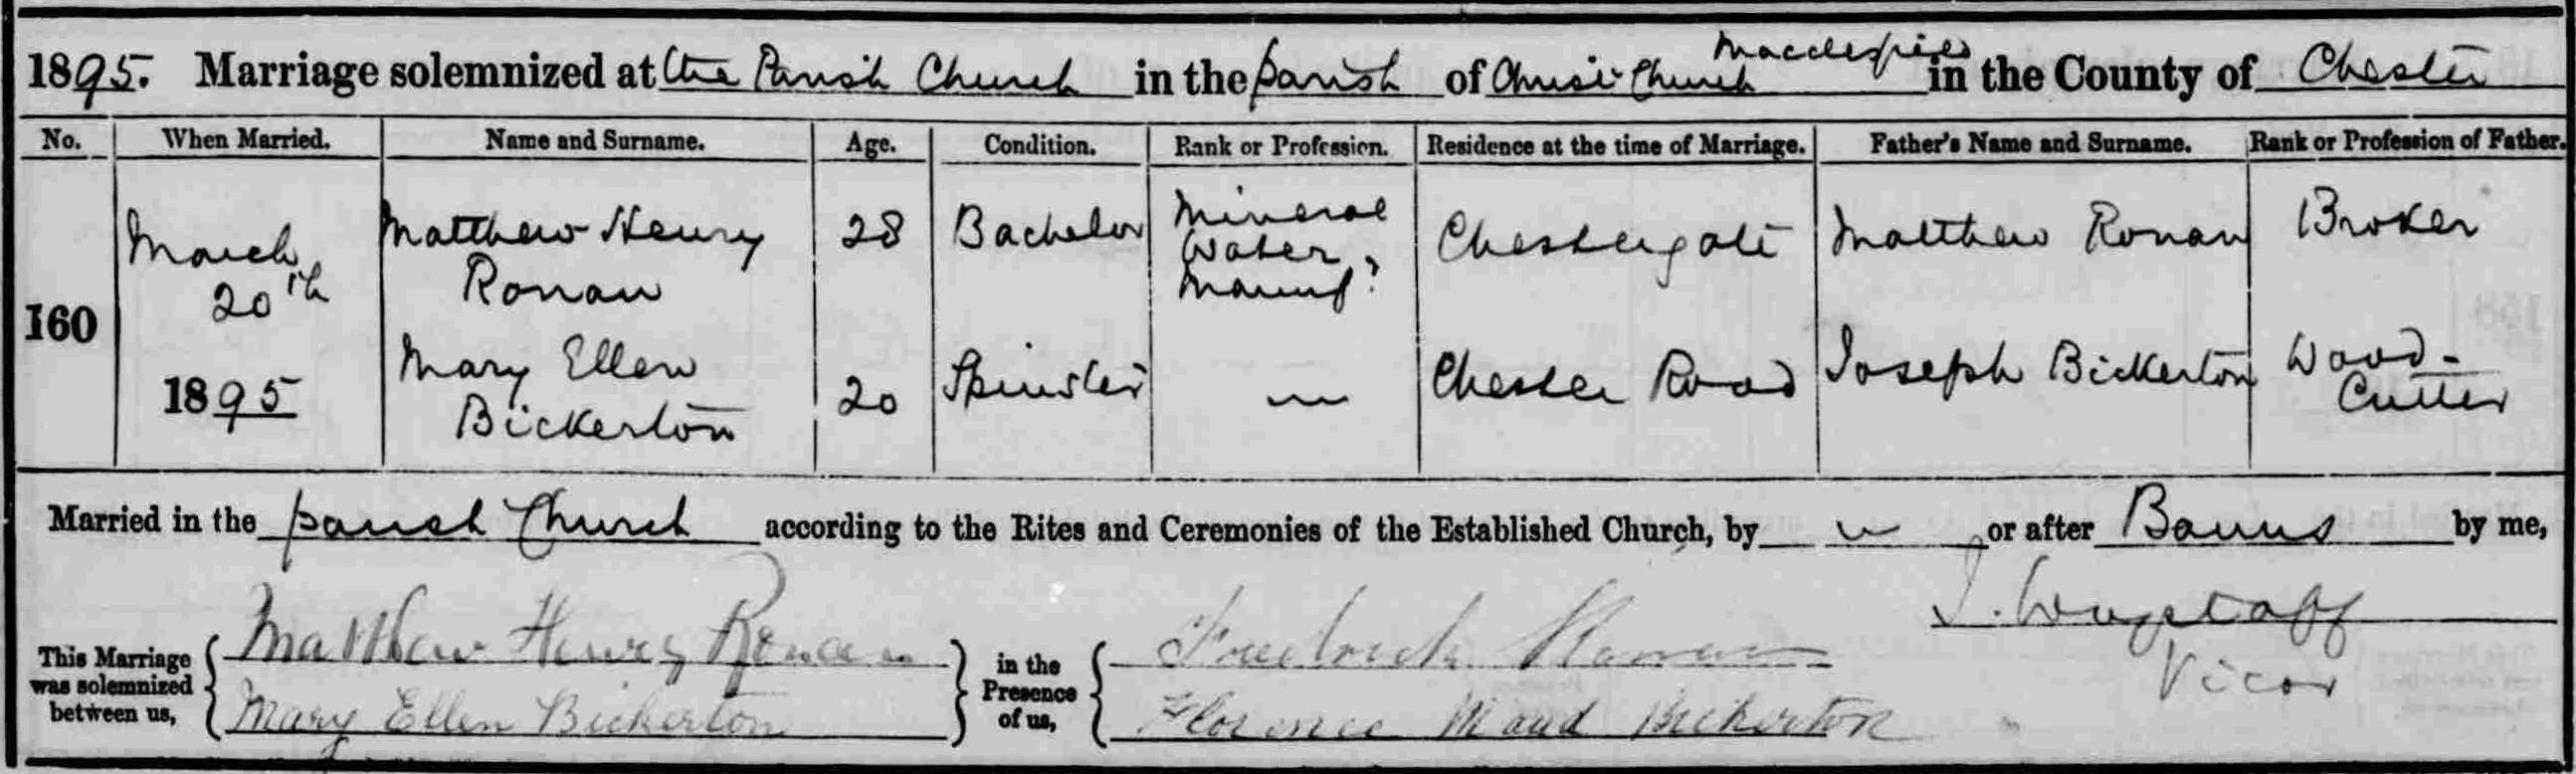 1895. Marriage solemnized at the Parish Church in the parish of Christ Church Macclesfield in the County of Chester
No. When Married. Name and Surname. Age. Condition. Rank or Profession. Residence at the time of Marriage. Father's Name and Surname. Rank or Profession of Father.
160
March
20th
1895
Matthew Henry
Ronan
28
Bachelor
Mineral
Water
Manuf:
Chestergate
Matthew Ronan
Broker
Mary Ellen
Bickerton
20
Spinster
—
Chester Road
Joseph Bickerton
Wood-
Cutter
Married in the parish Church according to the Rites and Ceremonies of the Established Church, by — or after Banns by me,
J. Wagstaff
Vicar
This Marriage
was solemnized
between us,
Matthew Henry Ronan
Mary Ellen Bickerton
in the
Presence
of us,
Frederick
Florence Maud Bickerton